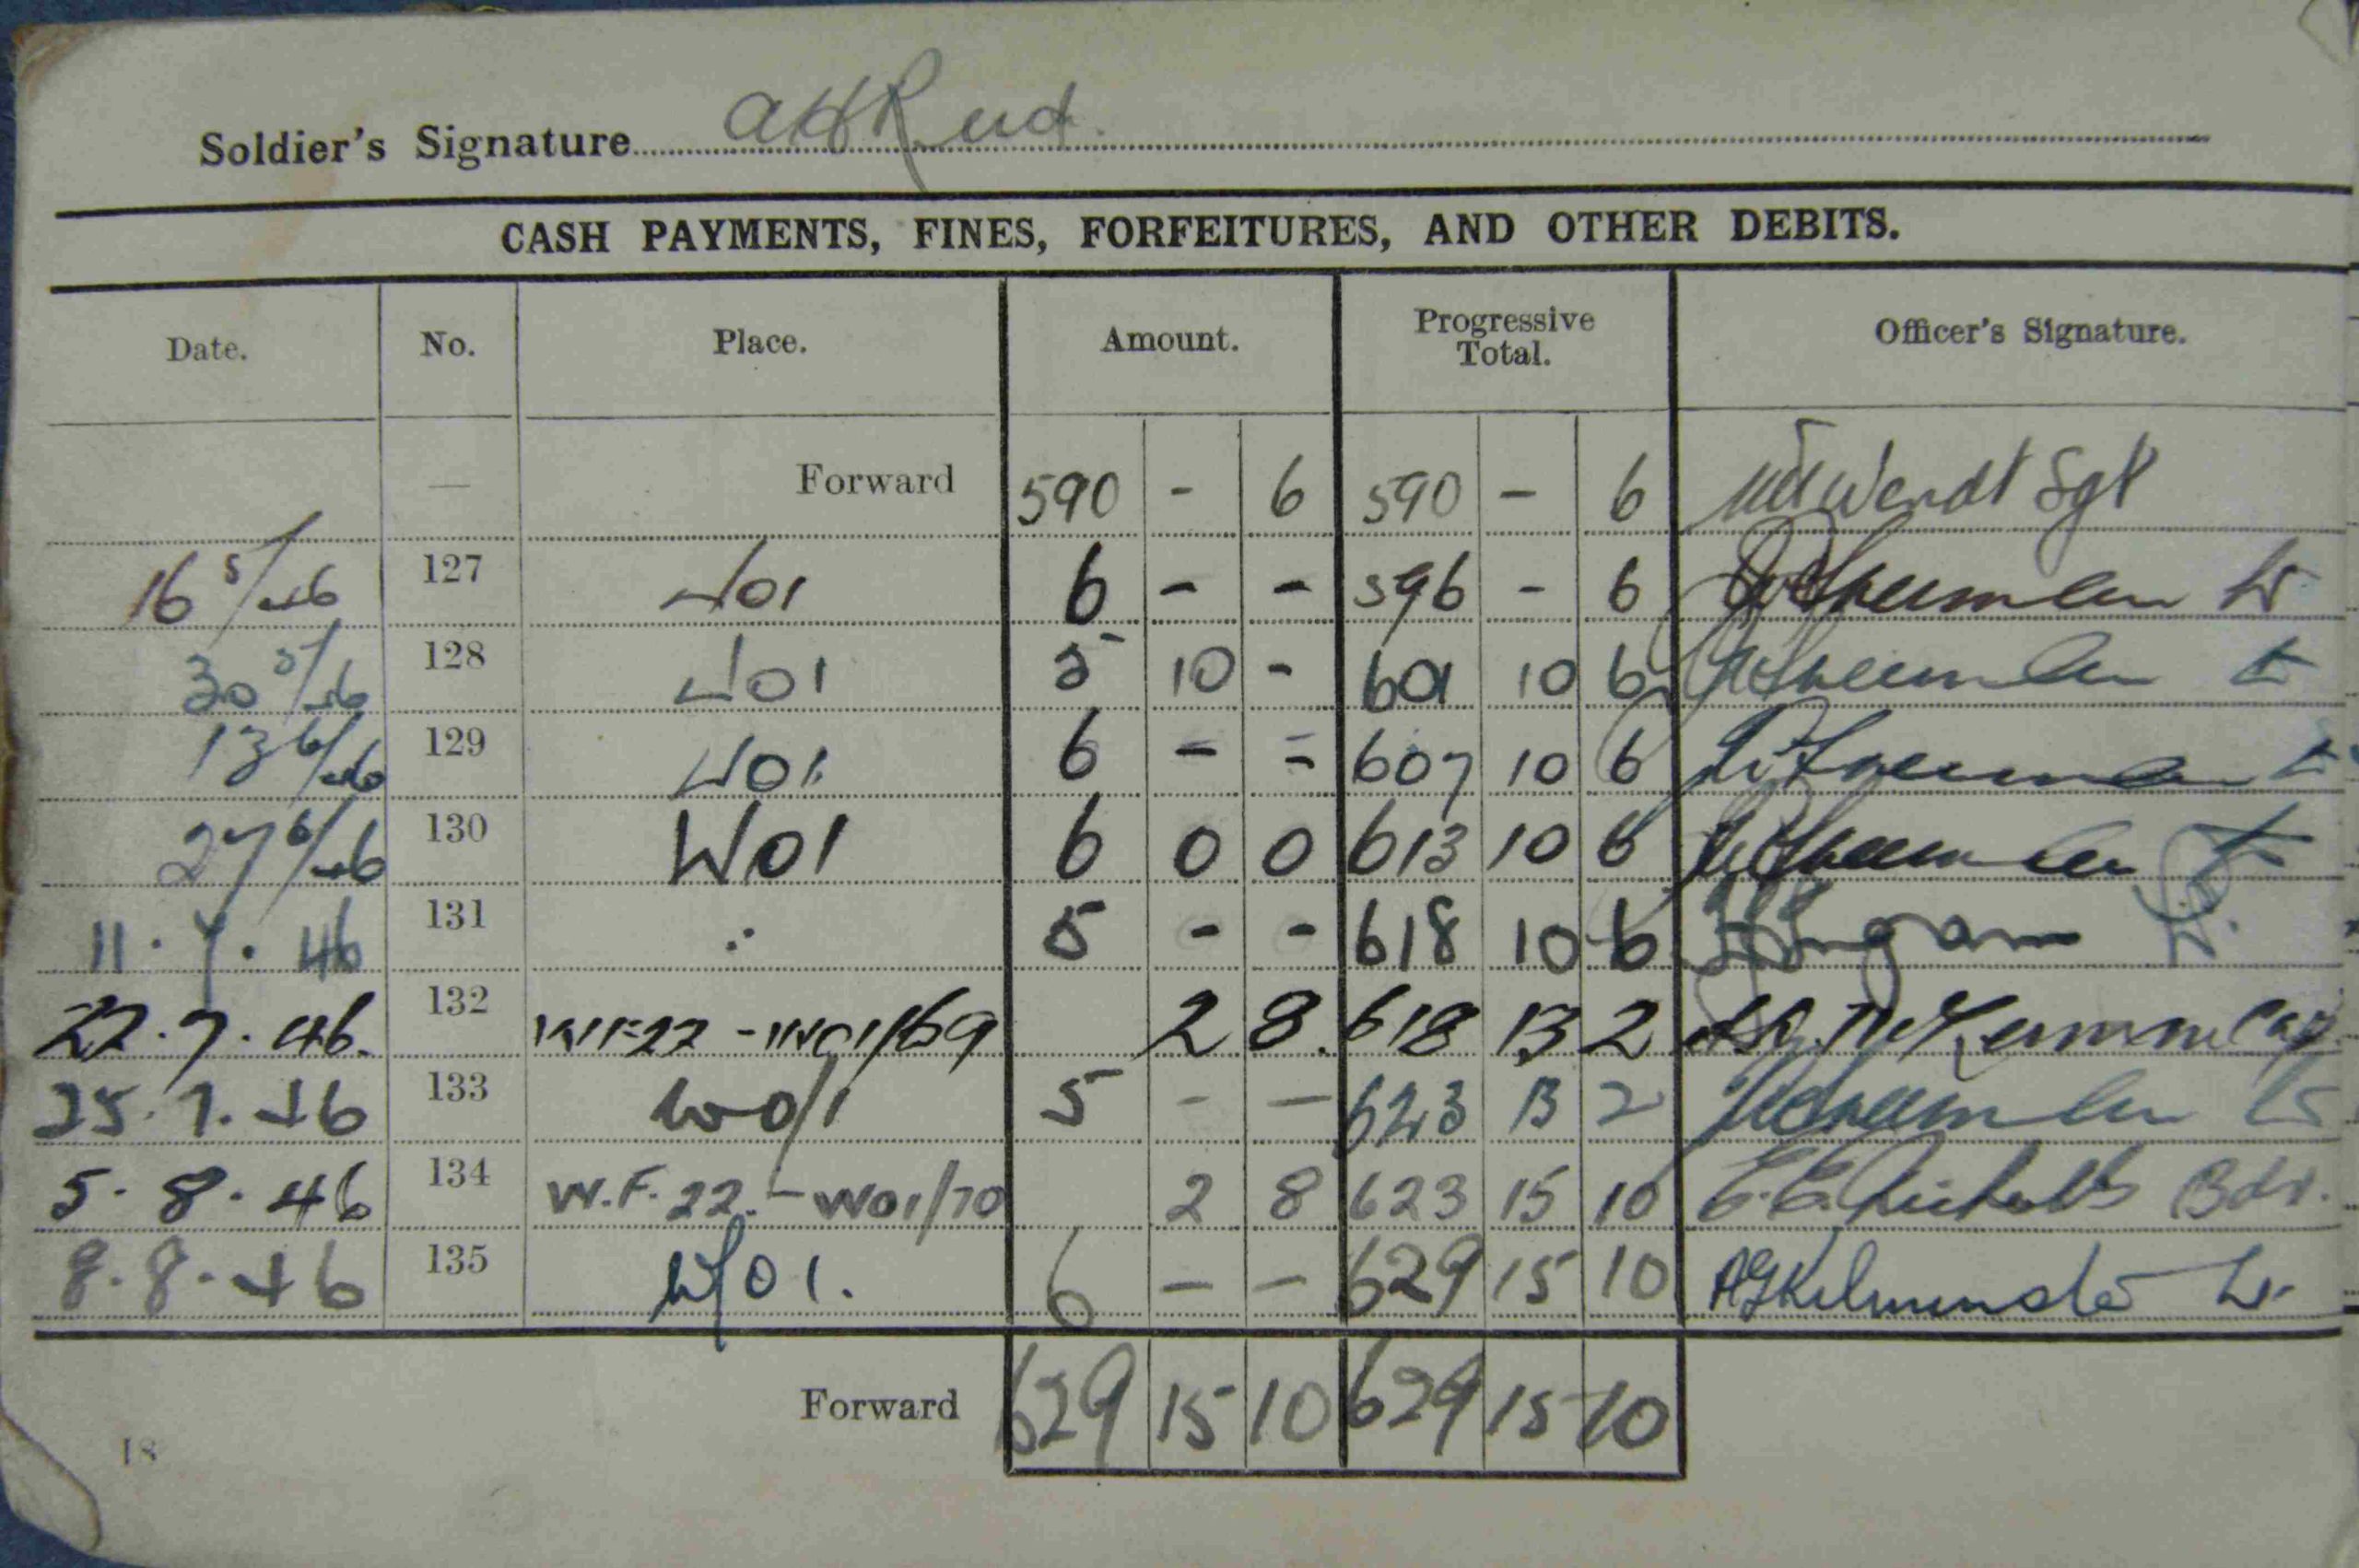 Soldier's Signature
CASH PAYMENTS, FINES, FORFEITURES, AND OTHER DEBITS.
Date. No. Place. Amount. Progressive Total. Officer's Signature.
— Forward 590 - 6 590 - 6 Wendt Sgt
16 5/46 127 W01 6 - - 596 - 6 Lt
30 5/46 128 W01 5 10 - 601 10 6 Lt
13 6/46 129 W01 6 - - 607 10 6 Lt
27 6/46 130 W01 6 0 0 613 10 6 Lt
11.7.46 131 " 5 - - 618 10 6 Lt.
22.7.46. 132 WF22 - W01/69 2 8. 618 13 2
25.7.46 133 W0/1 5 - — 623 13 2 Lt
5.8.46 134 W.F.22.-W01/70 2 8 623 15 10 Bdr.
8.8.46 135 W01. 6 — — 629 15 10 Lt.
Forward 629 15 10 629 15 10
18